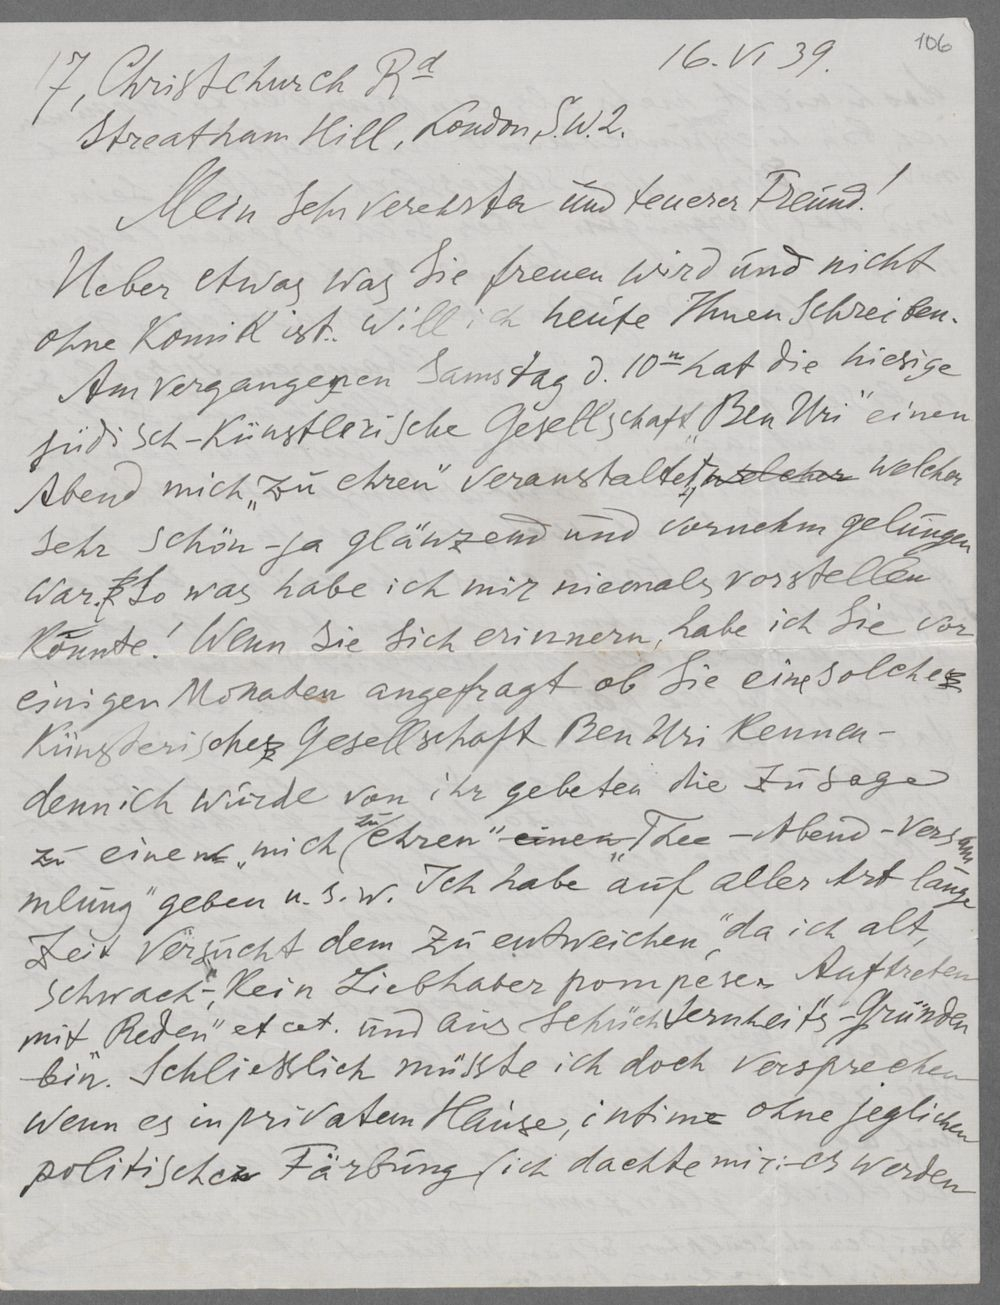 106
17, Christchurch Rd 16. VI 39.
Streatham Hill, London, S.W.2.
Mein sehr verehrter und teuerer Freund!
Ueber etwas was Sie freuen wird und nicht
ohne Komik ist. will ich heute Ihnen schreiben.
Am vergangenen Samstag d. 10n hat die hiesige
jüdisch-Künstlerische Gesellschaft „Ben Uri" einen
Abend mich „zu ehren" veranstaltet, welcher welcher
sehr schön - ja glänzend und vornehm gelungen
war. So was habe ich mir niemals vorstellen
könnte! Wenn Sie sich erinnern, habe ich Sie vor
einigen Monaten angefragt ob Sie eine solche
Künsterische Gesellschaft Ben Uri kennen -
denn ich würde von ihr gebeten die Zusage
zu einem „mich zu ehren" einen Thee - Abend - Versam
mlung" geben u. s. w. Ich habe "auf aller Art lange
Zeit versucht dem zu entweichen", da ich alt,
schwach -, „Kein Liebhaber pompeser Auftreten
mit Reden" et cet. und aus Schüchternheits-Gründen
bin". Schliesslich müsste ich doch versprechen
wenn es in privatem Hause, intime ohne jeglichen
politischen Färbung (ich dachte mir: - es werden